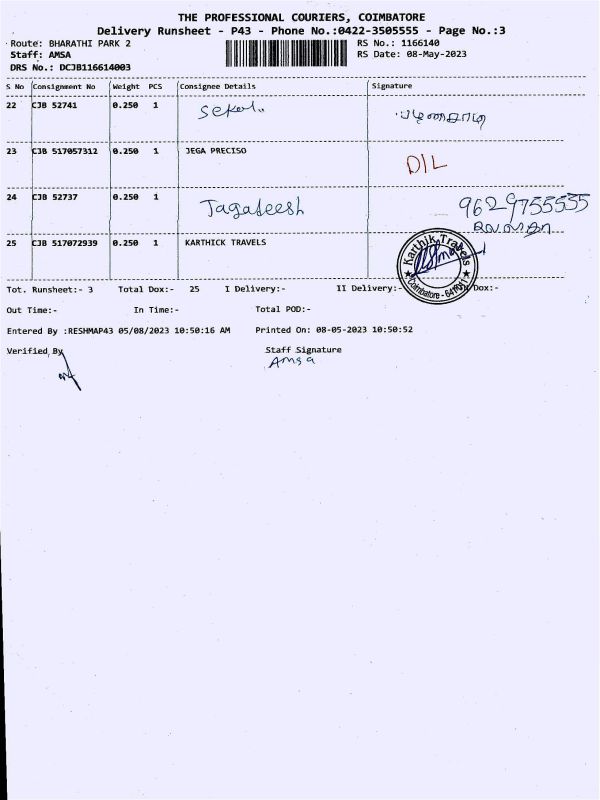 THE PROFESSIONAL COURIERS, COIMBATORE
Delivery Runsheet - P43 - Phone No.:0422-3505555 - Page No.:3
Route: BHARATHI PARK 2 RS No.: 1166140
Staff: AMSA RS Date: 08-May-2023
DRS No.: DCJB116614003
S No Consignment No Weight PCS Consignee Details Signature
22 CJB 52741 0.250 1 Sekar..
23 CJB 517057312 0.250 1 JEGA PRECISO D/L
24 CJB 52737 0.250 1 Jagateesh 9629755535
25 CJB 517072939 0.250 1 KARTHICK TRAVELS Karthik Travels Coimbatore
Tot. Runsheet:- 3 Total Dox:- 25 I Delivery:- II Delivery:- Dox:-
Out Time:- In Time:- Total POD:-
Entered By :RESHMAP43 05/08/2023 10:50:16 AM Printed On: 08-05-2023 10:50:52
Verified By Staff Signature
Amsa